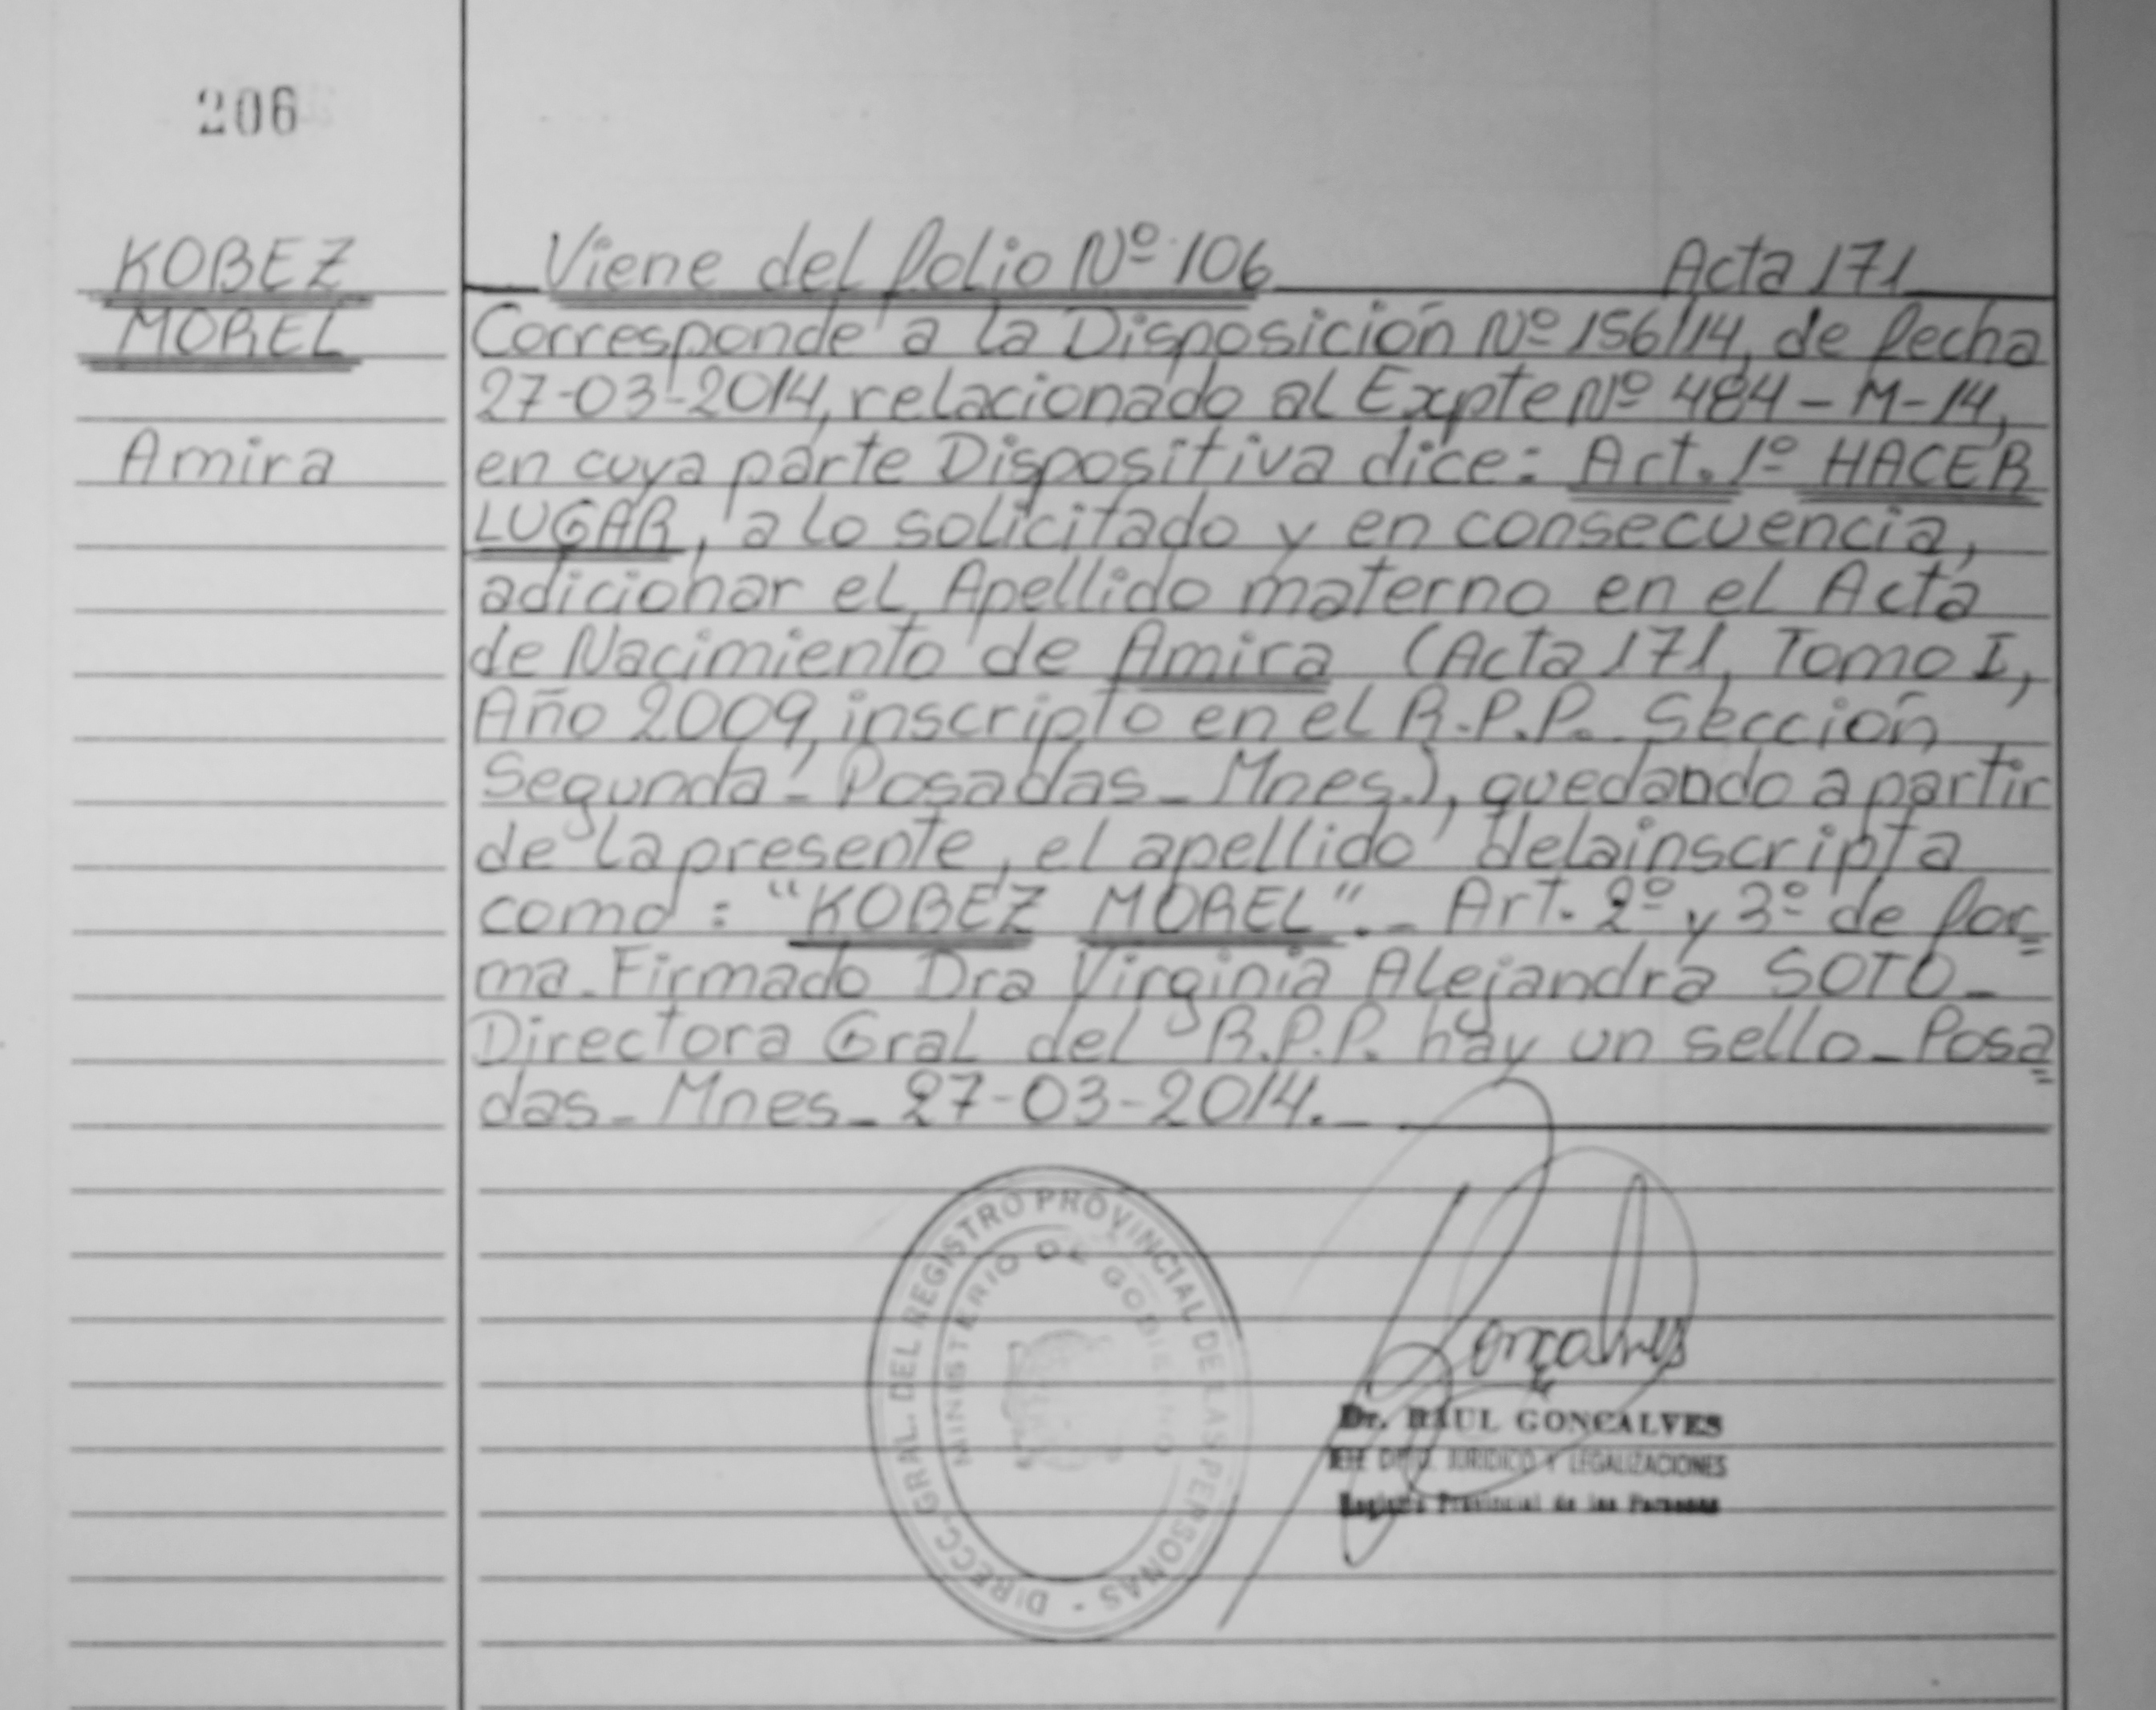 206
KOBEZ
MOREL
Amira
Viene del folio Nº 106 Acta 171
Corresponde a la Disposición Nº 156/14, de fecha
27-03-2014, relacionado al Expte Nº 484-M-14,
en cuya parte Dispositiva dice: Art. 1º HACER
LUGAR, a lo solicitado y en consecuencia,
adicionar el Apellido materno en el Acta
de Nacimiento de Amira (Acta 171, Tomo I,
Año 2009, inscripto en el R.P.P. Sección
Segunda - Posadas - Mnes.), quedando a partir
de la presente, el apellido de la inscripta
como: "KOBEZ MOREL". - Art. 2º y 3º de for=
ma - Firmado Dra Virginia Alejandra SOTO -
Directora Gral del R.P.P. hay un sello - Posa=
das - Mnes - 27-03-2014. -
DIRECC. GRAL. DEL REGISTRO PROVINCIAL DE LAS PERSONAS -
MINISTERIO DE GOBIERNO
Gonçalves
Dr. RAUL GONCALVES
JEFE DPTO. JURIDICO Y LEGALIZACIONES
Registro Provincial de las Personas